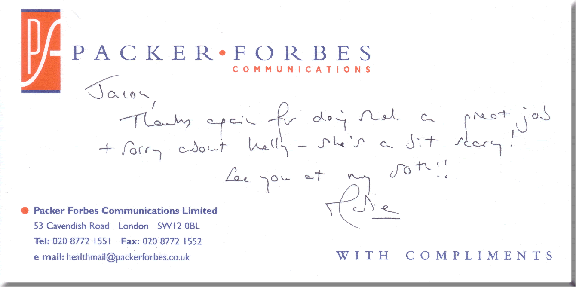 PACKER•FORBES
COMMUNICATIONS
Jason,
Thanks again for doing such a great job
+ sorry about Kelly – she's a bit scary!
See you at my 50th!!
• Packer Forbes Communications Limited
53 Cavendish Road London SW12 0BL
Tel: 020 8772 1551 Fax: 020 8772 1552
e mail: healthmail@packerforbes.co.uk
WITH COMPLIMENTS